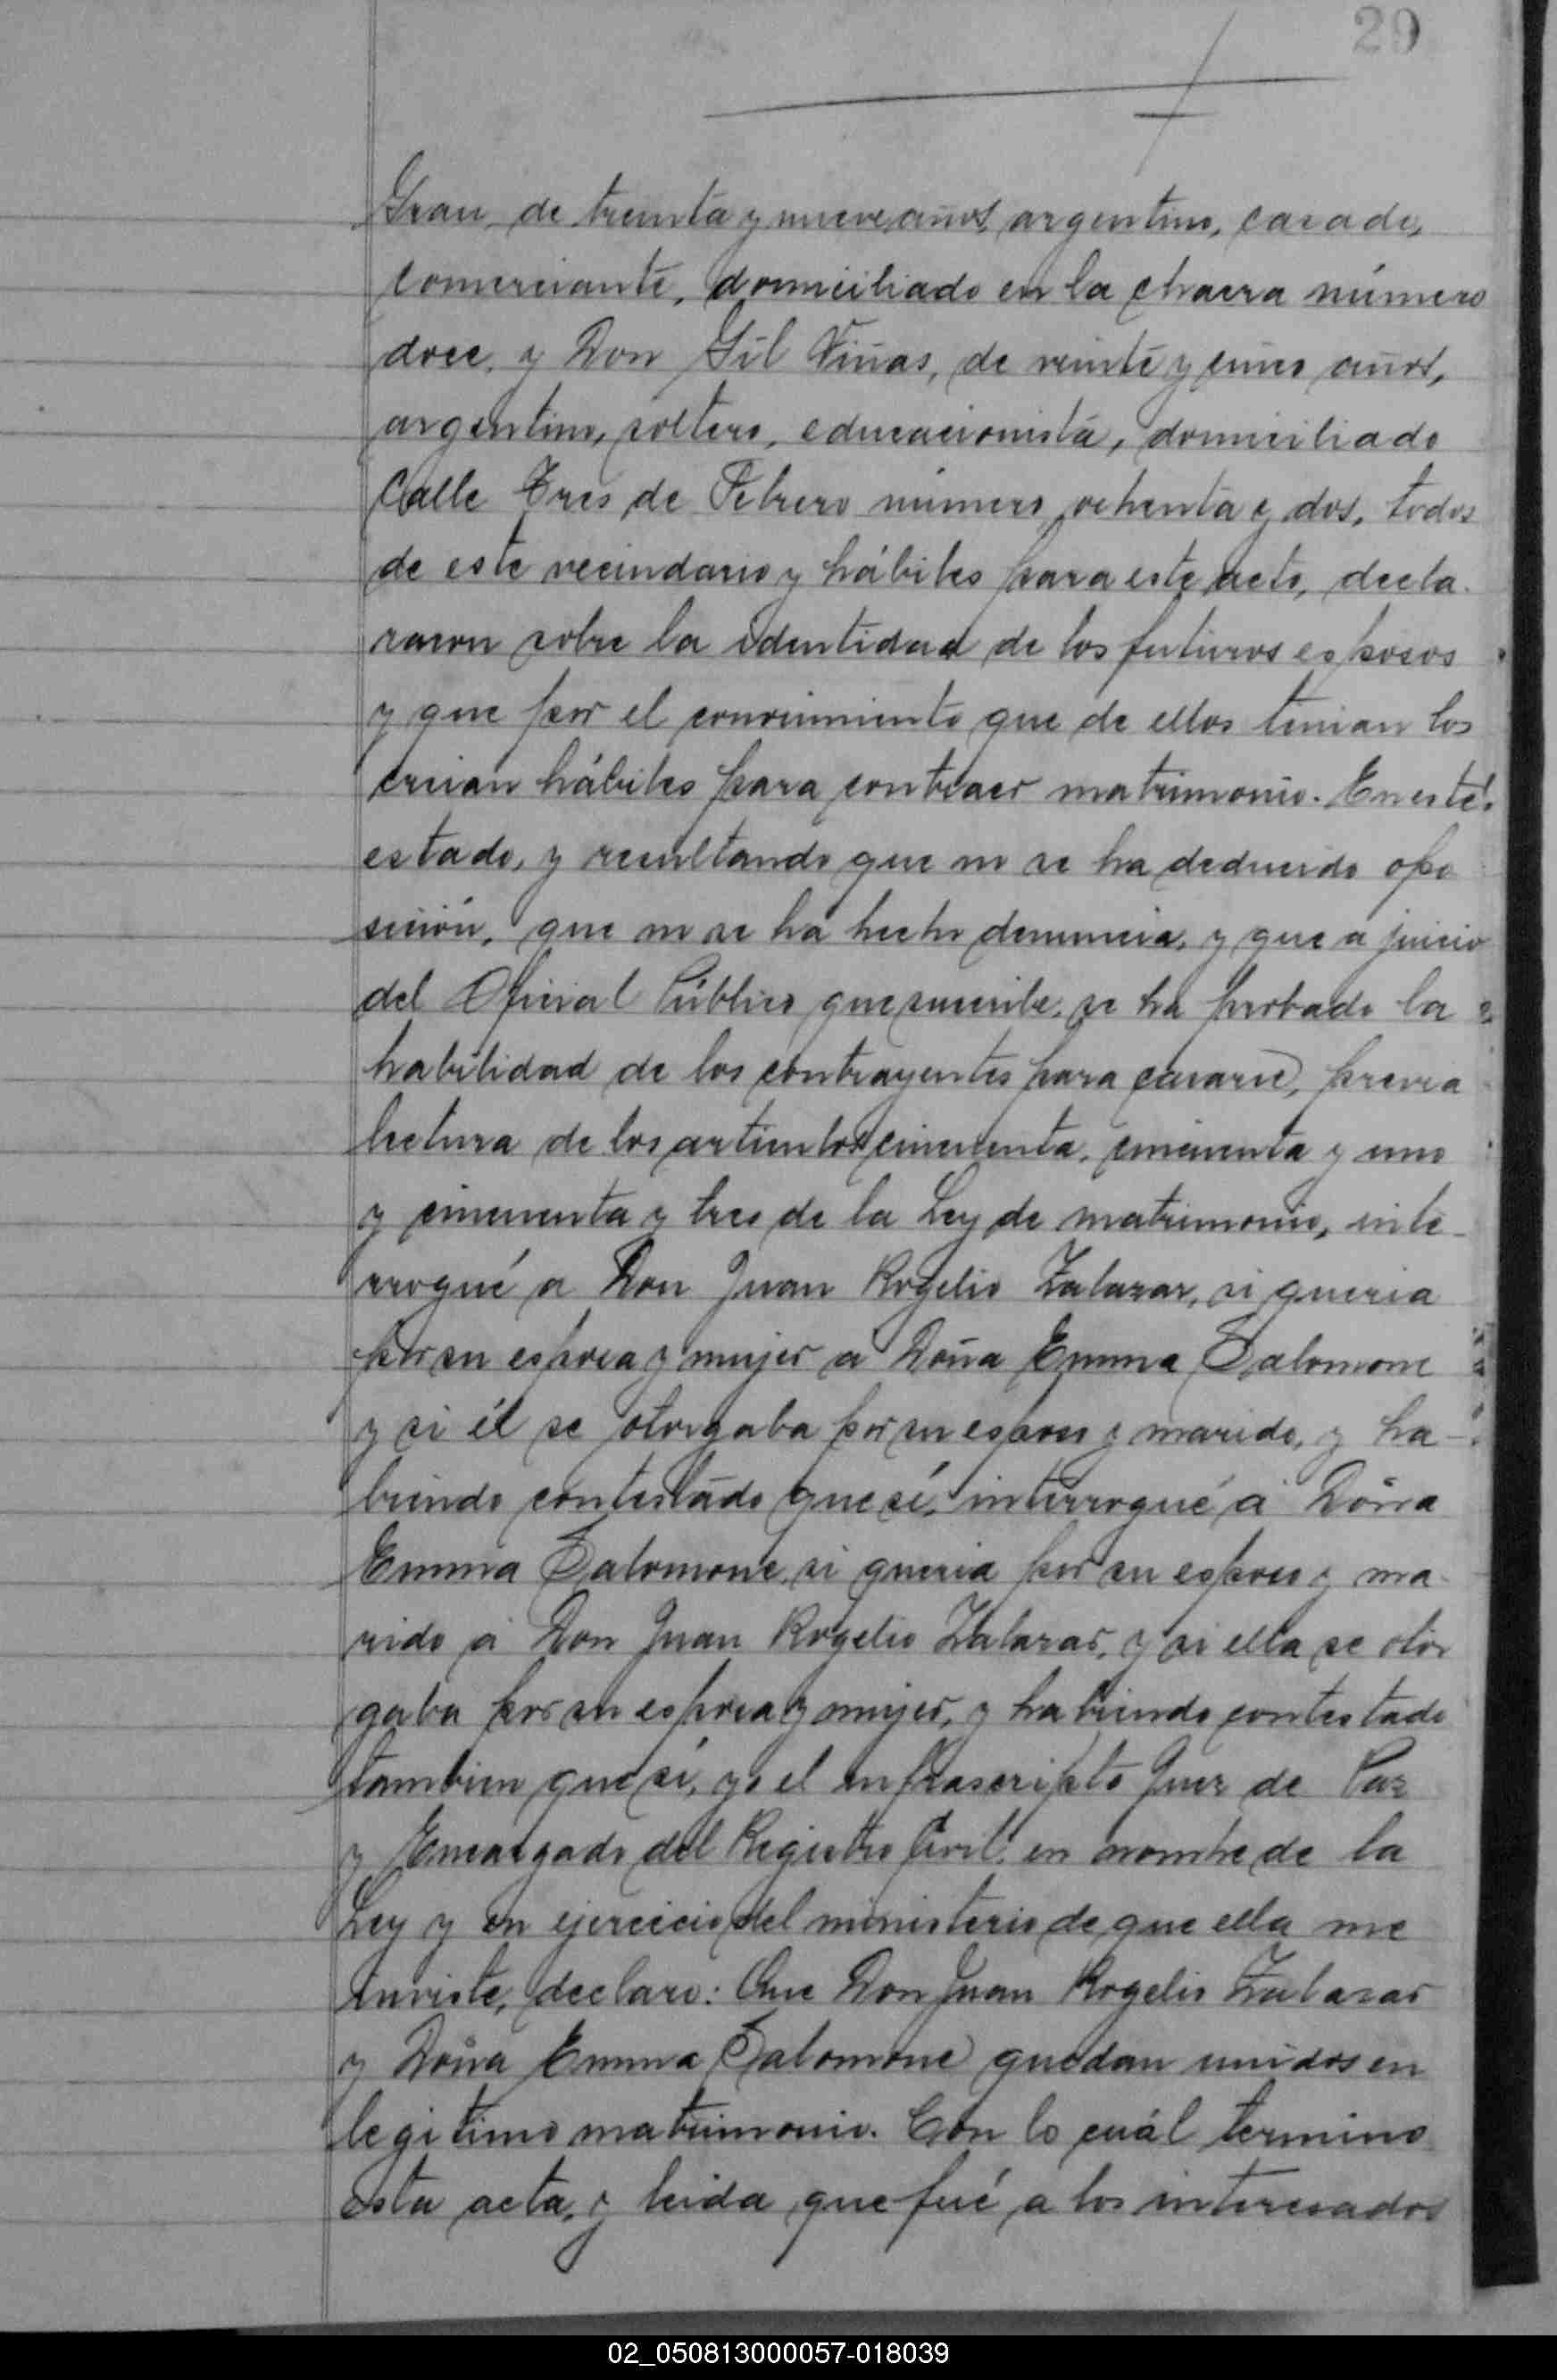 29
Grau, de treinta y nueve años, argentino, casado,
comerciante, domiciliado en la chacra número
doce, y Don Gil Viñas, de veinte y cinco años,
argentino, soltero, educacionista, domiciliado
Calle Tres de Febrero número ochenta y dos, todos
de este vecindario y hábiles para este acto, decla-
raron sobre la identidad de los futuros esposos
y que por el conocimiento que de ellos tenian los
creian hábiles para contraer matrimonio. En este
estado, y resultando que no se ha deducido opo
sición, que no se ha hecho denuncia, y que a juicio
del Oficial Público que suscribe, se ha probado la
habilidad de los contrayentes para casarse, previa
lectura de los artículos cincuenta, cincuenta y uno
y cincuenta y tres de la Ley de matrimonio, inte-
rrogué a Don Juan Rogelio Zalazar, si queria
por su esposa y mujer a Doña Emma Salomone
y si él se otorgaba por su esposo y marido, y ha-
biendo contestado que sí, interrogué á Doña
Emma Salomone, si queria por su esposo y ma-
rido á Don Juan Rogelio Zalazar, y si ella se otor
gaba por su esposa y mujer, y habiendo contestado
tambien que sí, yo el infrascripto Juez de Paz
y Encargado del Registro Civil, en nombre de la
Ley y en ejercicio del ministerio de que ella me
inviste, declaro: Que Don Juan Rogelio Zalazar
y Doña Emma Salomone quedan unidos en
legitimo matrimonio. Con lo cuál termino
esta acta, y leida que fué a los interesados
02_050813000057-018039